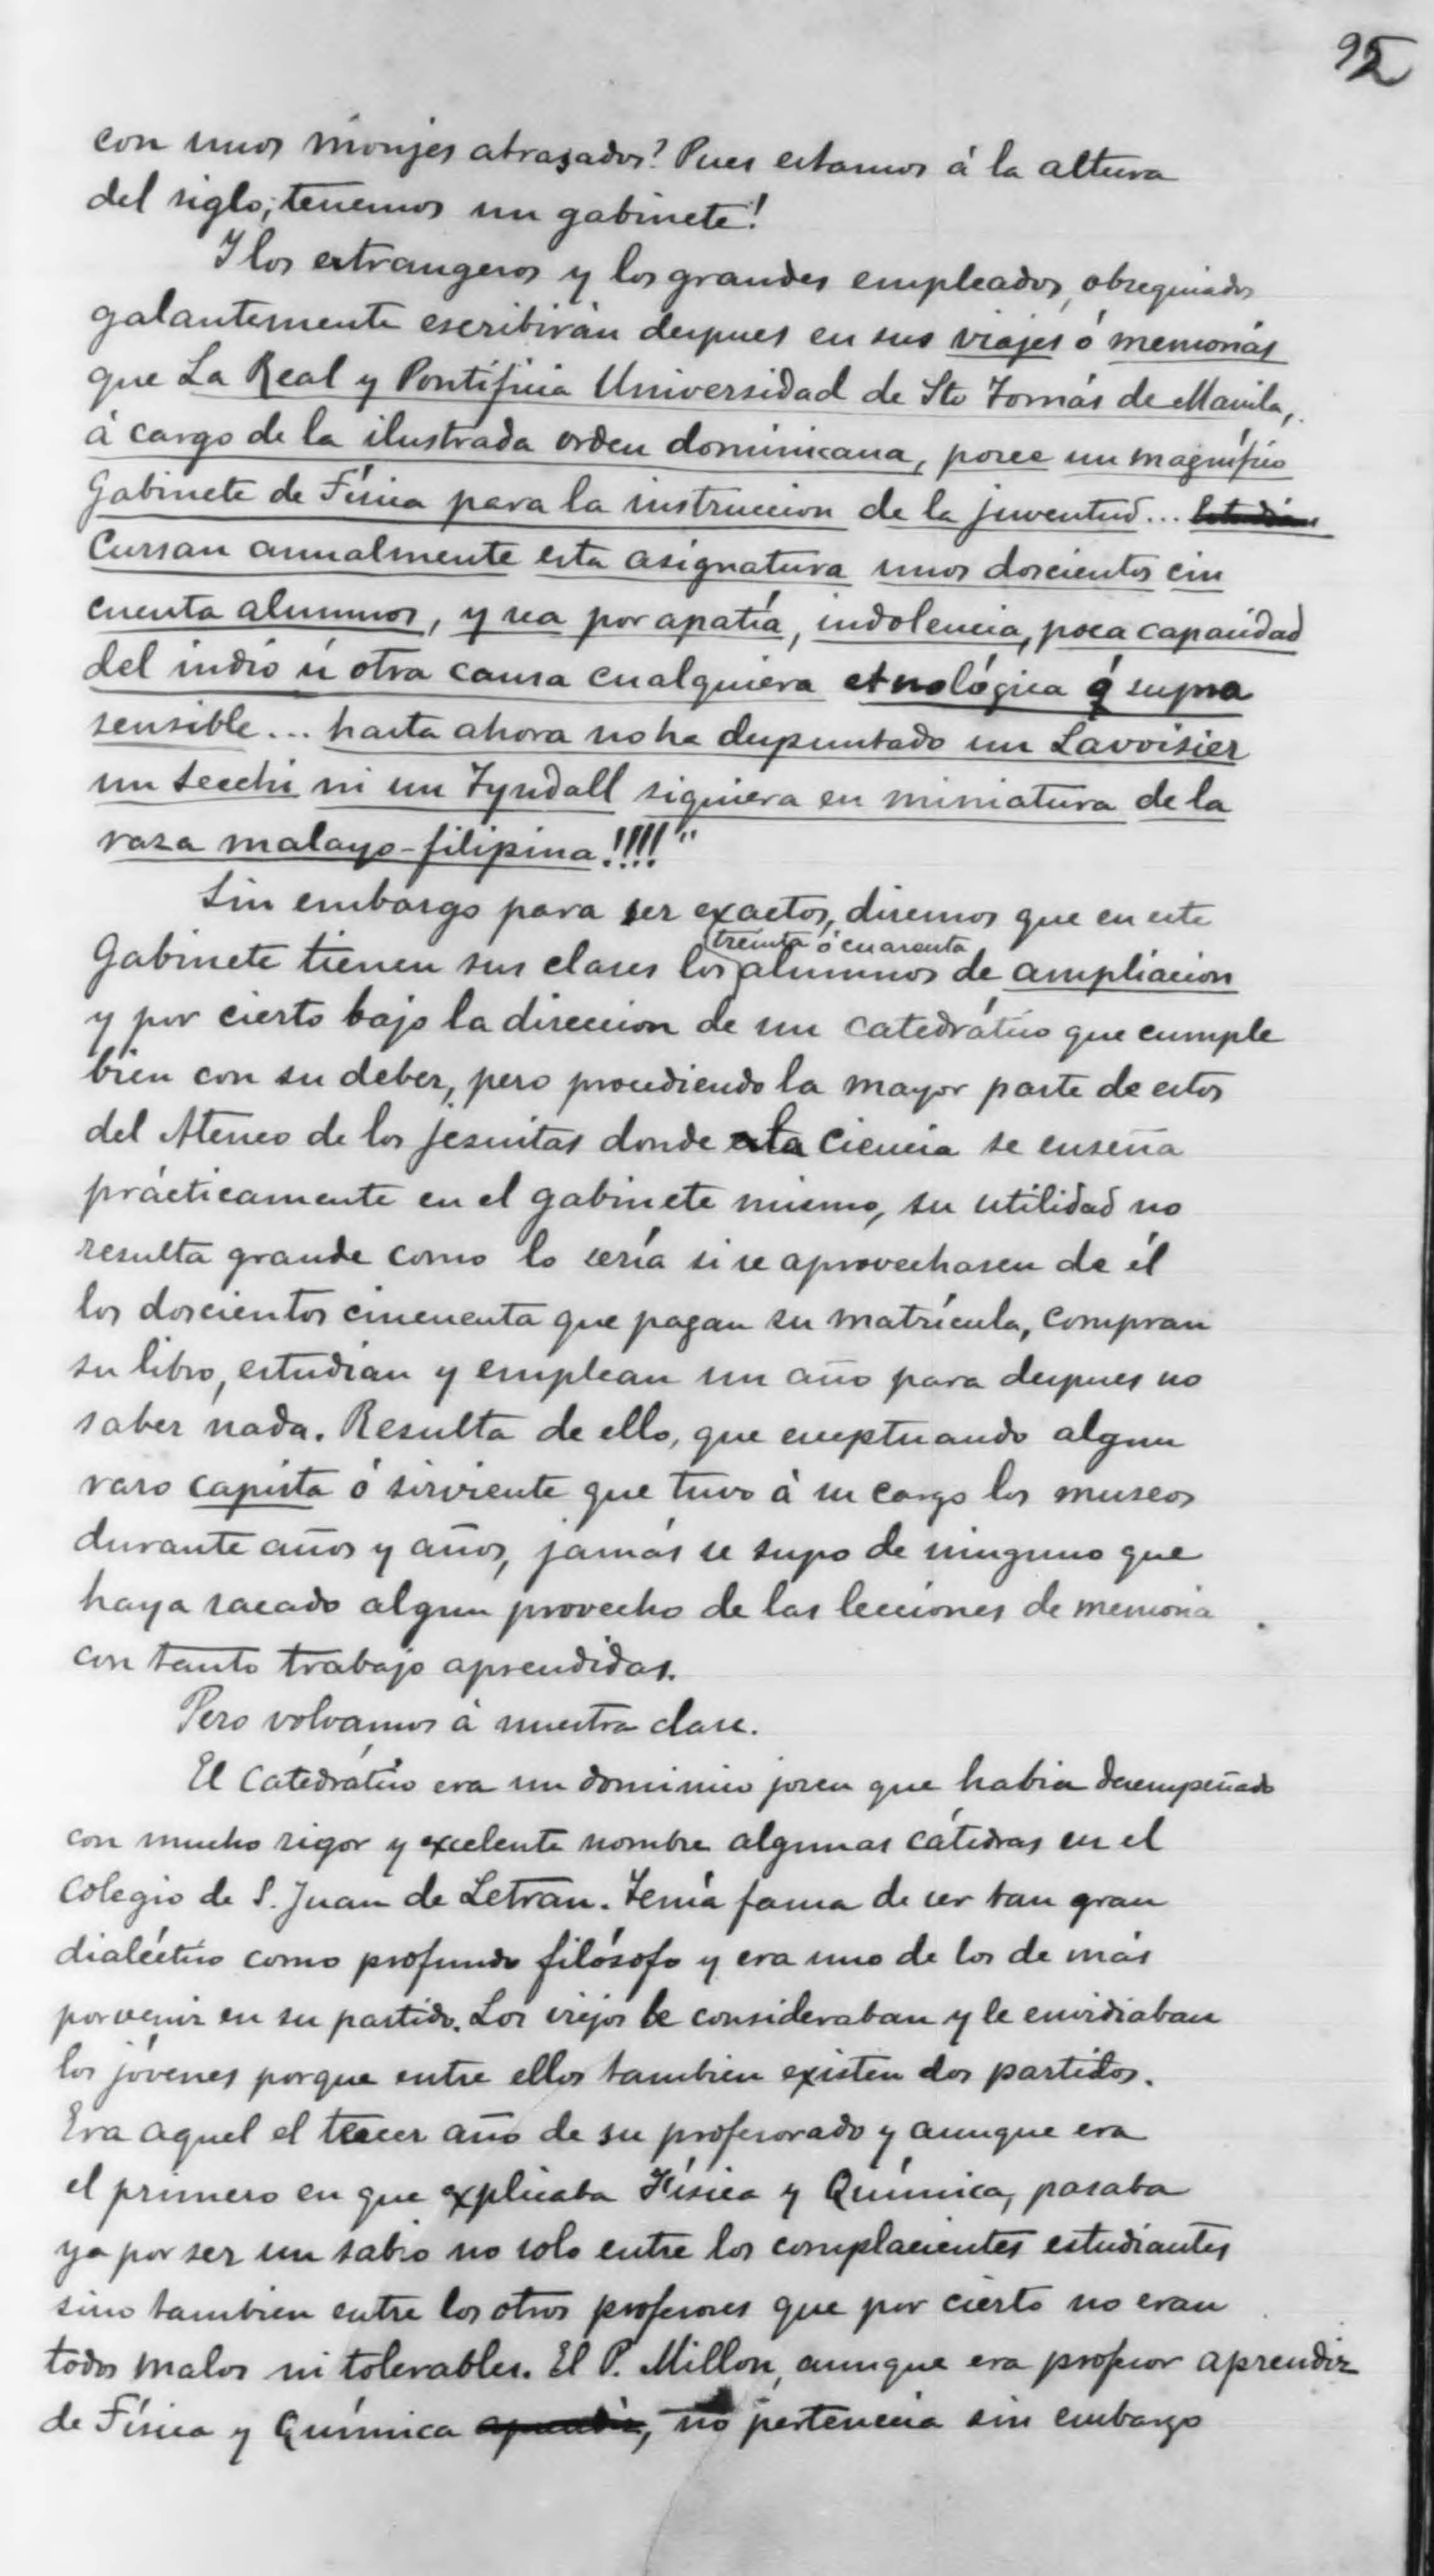 95
con unos monjes atrasados? Pues estamos á la altura
del siglo; tenemos un gabinete!
Y los extrangeros y los grandes empleados, obsequiados
galantemente escribirán despues en sus viajes ó memorias
que La Real y Pontificia Universidad de Sto Tomás de Manila,
á cargo de la ilustrada orden dominicana, posee un magnífico
Gabinete de Física para la instruccion de la juventud...
Cursan anualmente esta asignatura unos doscientos cin
cuenta alumnos, y sea por apatía, indolencia, poca capacidad
del indio ú otra causa cualquiera etnológica ó supra
sensible... hasta ahora no ha despuntado un Lavoisier
un Secchi ni un Tyndall siquiera en miniatura de la
raza malayo-filipina!!!!"
Sin embargo para ser exactos, diremos que en este
treinta ó cuarenta
Gabinete tienen sus clases los alumnos de ampliacion
y por cierto bajo la direccion de un catedrático que cumple
bien con su deber, pero procediendo la mayor parte de estos
del Ateneo de los jesuitas donde esta ciencia se enseña
prácticamente en el gabinete mismo, su utilidad no
resulta grande como lo sería si se aprovechasen de él
los doscientos cincuenta que pagan su matrícula, compran
su libro, estudian y emplean un año para despues no
saber nada. Resulta de ello, que eceptuando algun
raro capista ó sirviente que tuvo á su cargo los museos
durante años y años, jamás se supo de ninguno que
haya sacado algun provecho de las lecciones de memoria
con tanto trabajo aprendidas.
Pero volvamos á nuestra clase.
El Catedrático era un dominico joven que habia desempeñado
con mucho rigor y excelente nombre algunas cátedras en el
Colegio de S. Juan de Letran. Tenía fama de ser tan gran
dialéctico como profundo filósofo y era uno de los de más
porvenir en su partido. Los viejos le consideraban y le envidiaban
los jóvenes porque entre ellos tambien existen dos partidos.
Era aquel el tercer año de su profesorado y aunque era
el primero en que explicaba Física y Química, pasaba
ya por ser un sabio no solo entre los complacientes estudiantes
sino tambien entre los otros profesores que por cierto no eran
todos malos ni tolerables. El P. Millon, aunque era profesor aprendiz
de Física y Química aprendiz, no pertenecia sin embargo